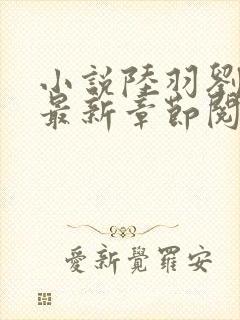 小說陸羽劉
最新章節閱
愛新覺羅安